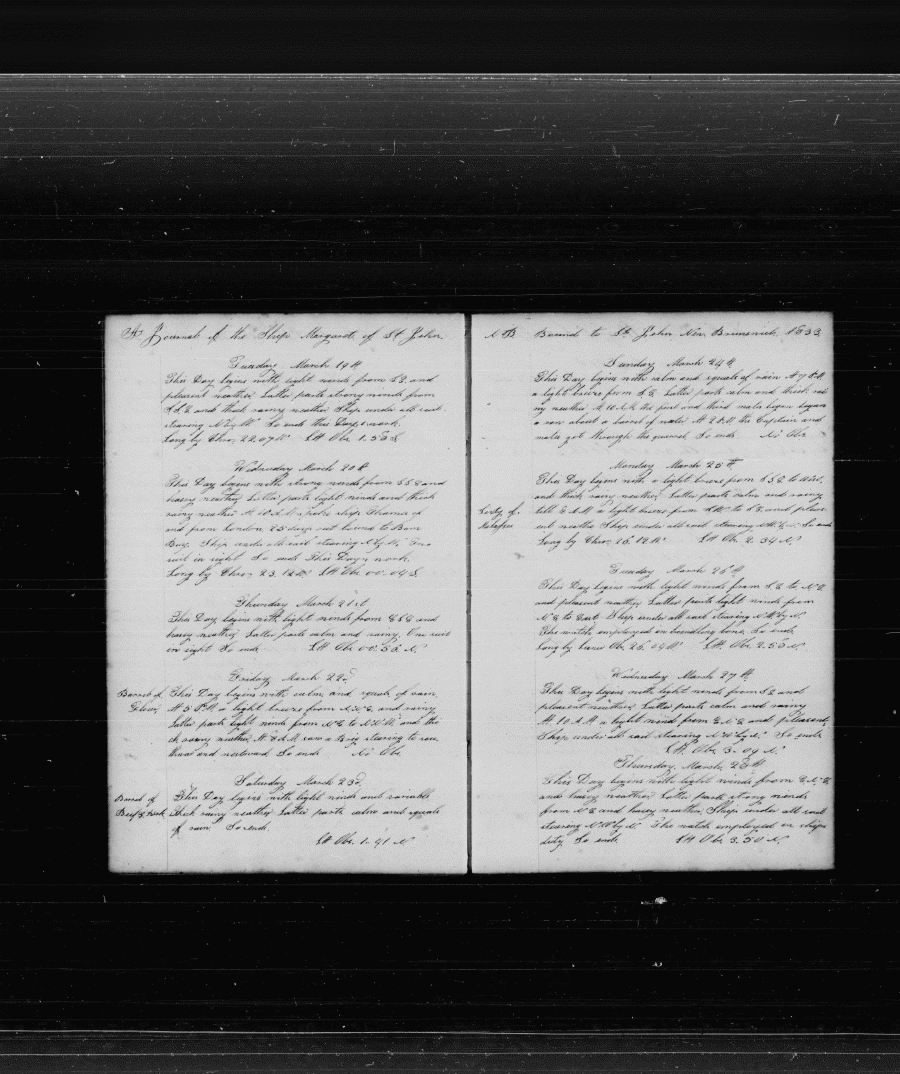 A Journal of the Ship Margaret of St John
Tuesday March 19th
This Day begins with light winds from S.E. and
pleasent weather Latter parts strong winds from
S.S.E. and thick rainy weather Ship under all sail
stearing N by W. So ends this Days work.
Long by Chro. 22.07 W Lt Obs. 1.53 S
Wednesday March 20th
This Day begins with strong winds from S S E and
heavy weather Latter parts light winds and thick
rainy weather At 10 A.M. spoke ship Thames of
and from London 25 days out bound to Bom
Bay. Ship under all sail stearing N by W. One
sail in sight So ends This Days work.
Long by Chro. 23.12 W Lt Obs. 00.04 S
Thursday March 21st
This Day begins with light winds from E S E and
hazy weather Latter parts calm and rainy. One sail
in sight So ends Lt Obs 00.55 N
Friday March 22d
Barrel of
This Day begins with calm and squals of rain.
At 5 P.M. a light breeze from N.W. and rainy
Latter parts light winds from N E to N.N.W. and thi
ck rainy weather At 8 A.M. saw a Brig stearing to sou
thard and westward So ends No Obs.
Saturday March 23d
Barrel of
Beef & Pork
This Day begins with light winds and variable
thick rainy weather Latter parts calm and squals
of rain. So ends.
Lt Obs. 1.41 N
N B Bound to St John New Brunswick 1833
Sunday March 24th
This Day begins with calm and squals of rain At 7 P.M.
a light breeze from S E Latter parts calm and thick rai
ny weather At 10 A.M. the first and third mate began
a row about a barrel of water At 2 P.M. the Captain and
mate got through the quarrel So ends No Obs
Monday March 25th
This Day begins with a light breeze from S S E to West
and thick rainy weather Latter parts calm and rainy
till 8 A.M. a light breeze from S.W. to S E and pleas
ent weather Ship under all sail stearing N.W. by N. So ends
Long by Chro. 25.12 W Lt Obs 2.34 N
Cask of
Molasses
Tuesday March 26th
This Day begins with light winds from S.E to N E
and pleasent weather Latter parts light winds from
N E to East. Ship under all sail stearing N.W. by N.
The watch employed in So ends
Long by Lunar Obs. 26.04 W Lt. Obs 2.55 N
Wednesday March 27th
This Day begins with light winds from S E and
pleasent weather Latter parts calm and rainy
At 10 A.M a light wind from E N E and pleasent.
Ship under all sail stearing N W by N. So ends
Lt. Obs 3.09 N.
Thursday March 28th
This Day begins with light winds from E.N.E
and hazy weather Latter parts strong winds
from N E and hazey weather, Ship under all sail
stearing N W by N The watch employed in ships
duty So ends. Lt Obs 3.50 N.